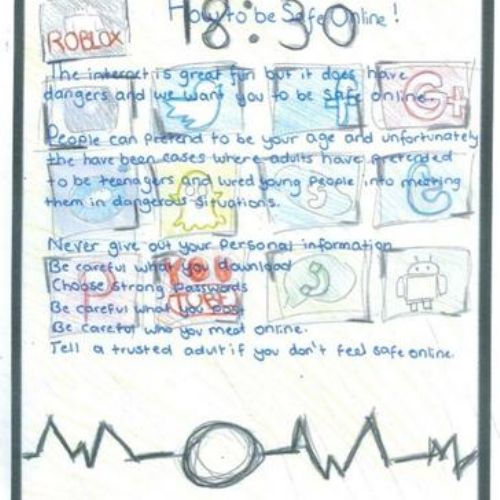 How to be Safe Online!
18:30
ROBLOX
The internet is great fun but it does have
dangers and we want you to be safe online.
People can pretend to be your age and unfortunately
the have been cases where adults have pretended
to be teenagers and lured young people into meeting
them in dangerous situations.
Never give out your personal information
Be careful what you download
Choose strong passwords
Be careful what you post
Be careful who you meat online.
Tell a trusted adult if you don't feel safe online.
YOU
TUBE